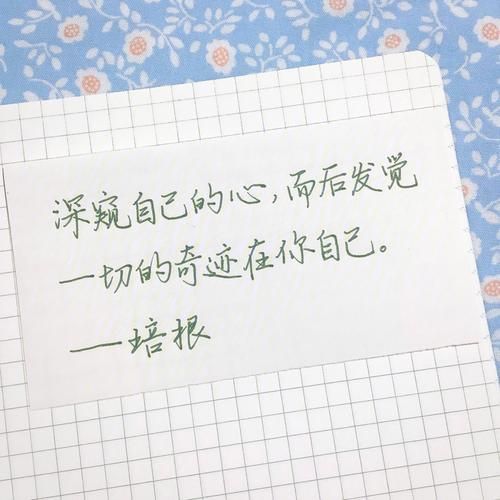 深窥自己的心,而后发觉
一切的奇迹在你自己。
——培根